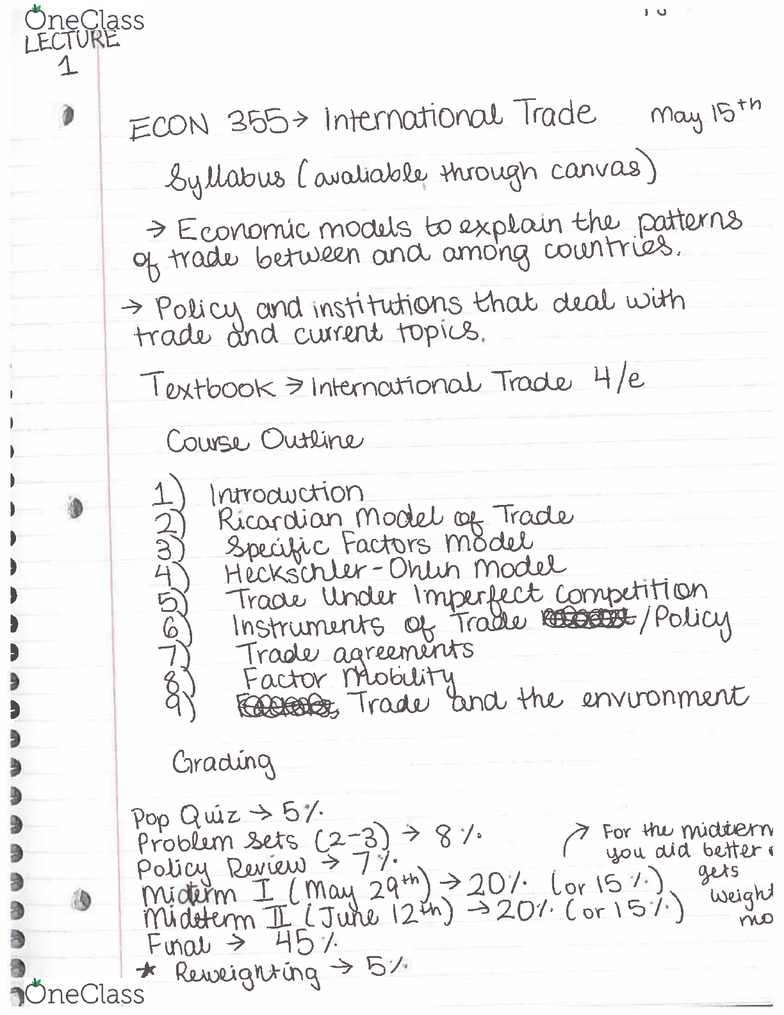 OneClass
LECTURE
1
ECON 355 → International Trade May 15th
Syllabus (avaliable through canvas)
→ Economic models to explain the patterns
of trade between and among countries.
→ Policy and institutions that deal with
trade and current topics.
Textbook → International Trade 4/e
Course Outline
1) Introduction
2) Ricardian Model of Trade
3) Specific Factors Model
4) Heckschler-Ohlin Model
5) Trade Under Imperfect competition
6) Instruments of Trade /Policy
7) Trade agreements
8) Factor Mobility
9) Trade and the environment
Grading
Pop Quiz → 5%
Problem Sets (2-3) → 8%
Policy Review → 7%
Midterm I (May 29th) → 20% (or 15%)
Midterm II (June 12th) → 20% (or 15%)
Final → 45%
* Reweighting → 5%
For the midterm
you did better
gets
weight
mo
OneClass